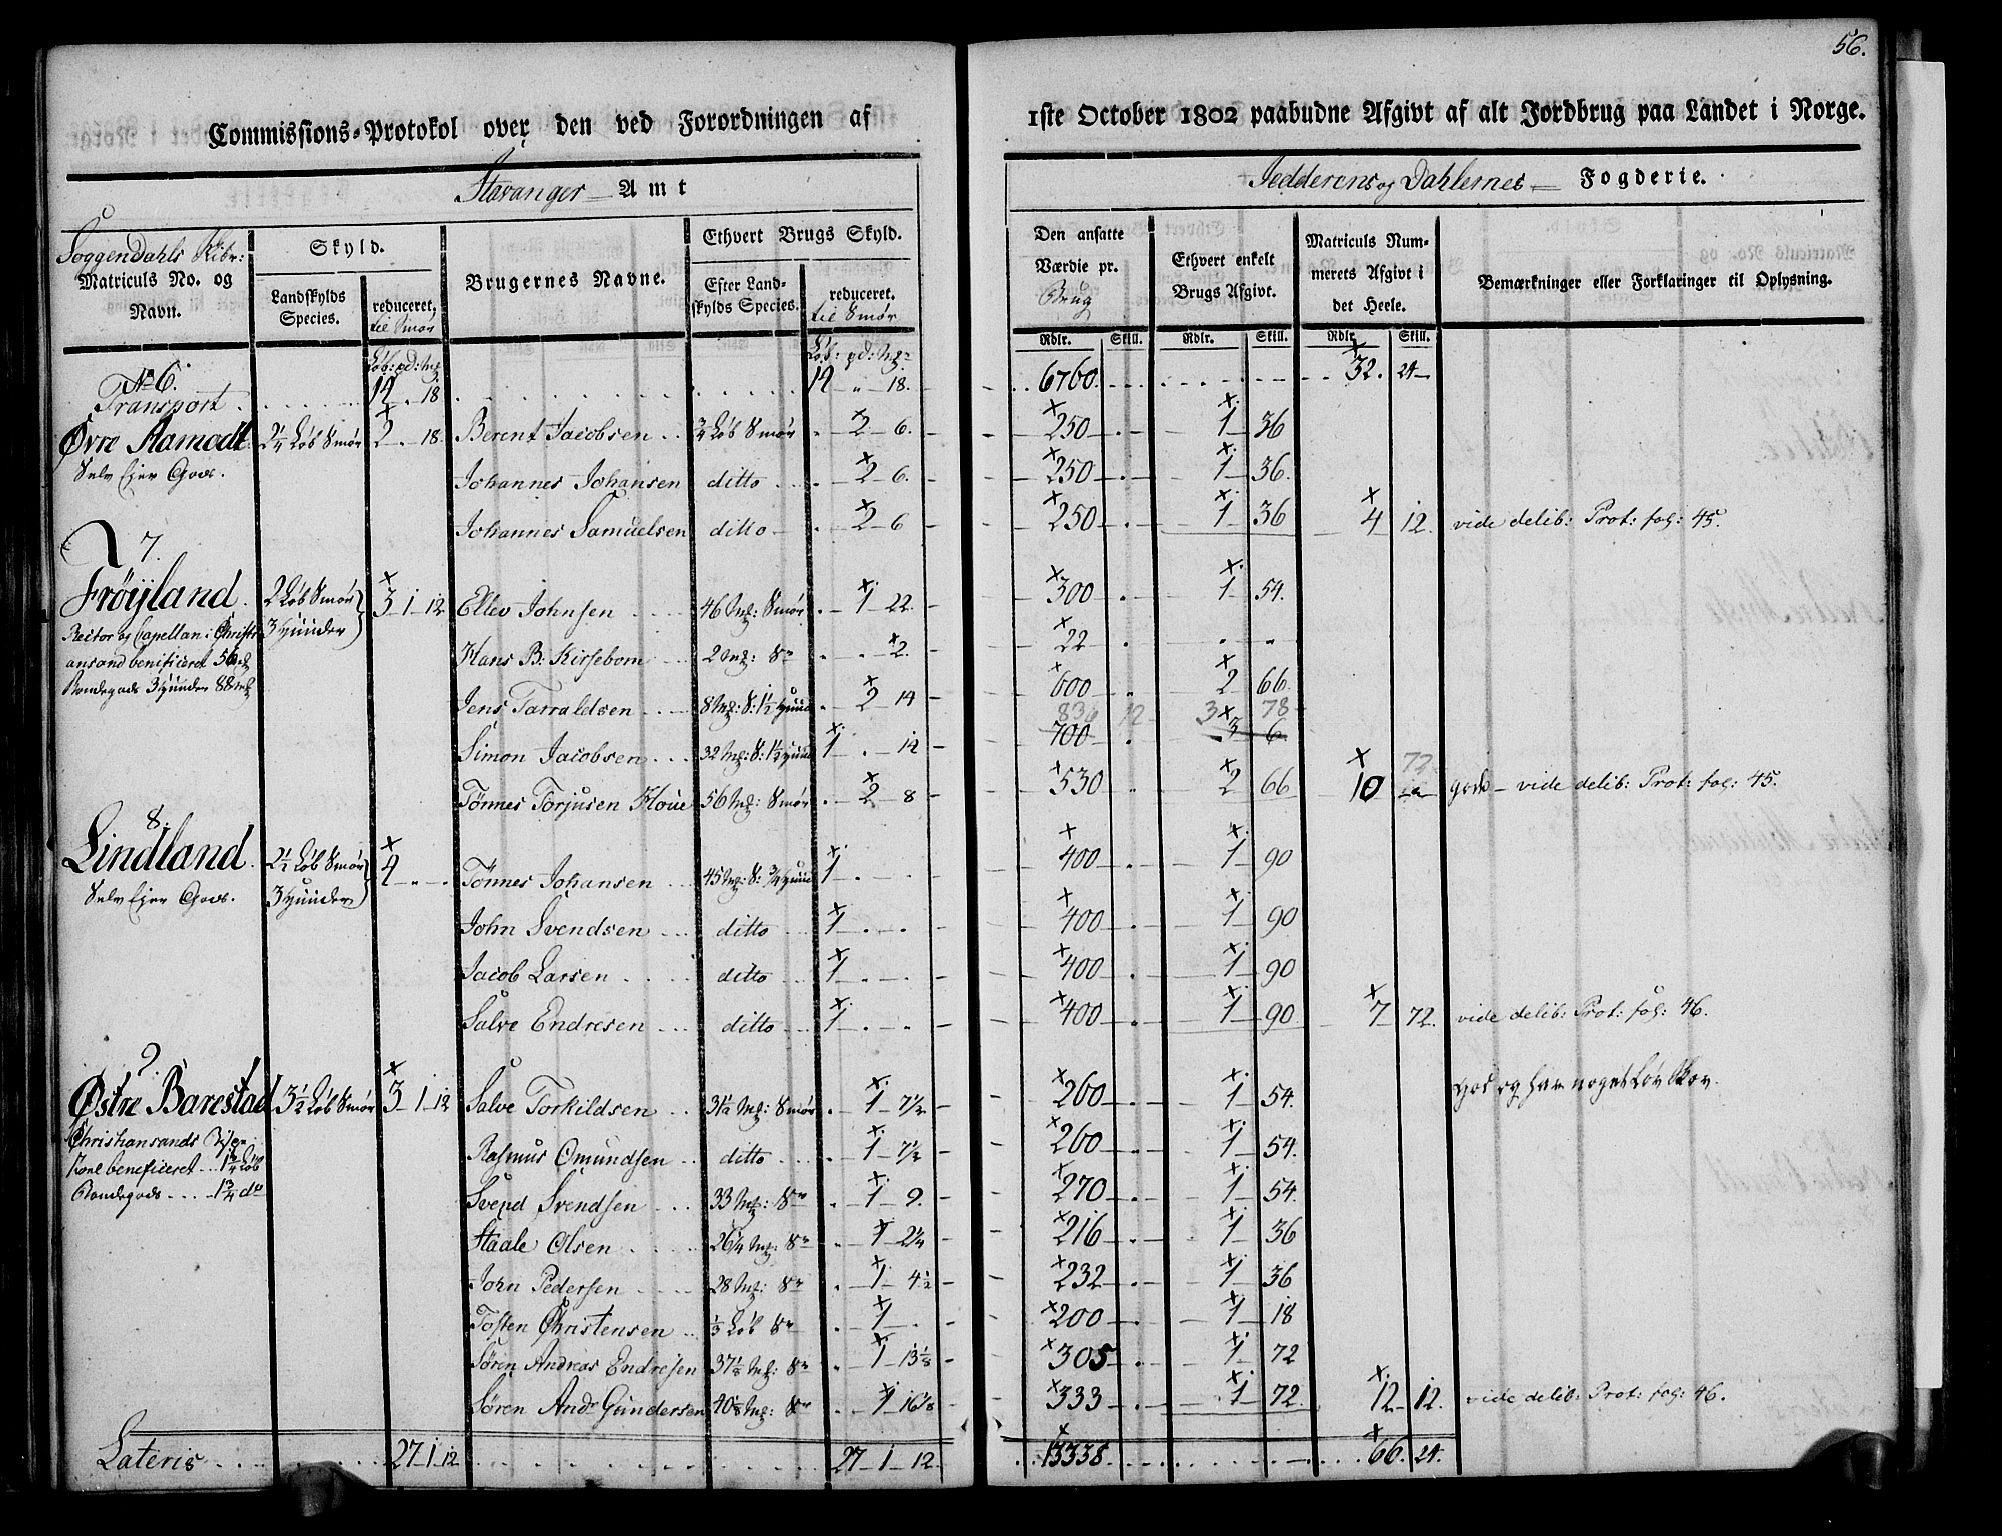 56.
Commissions-Protokol over den ved Forordningen af 1ste October 1802 paabudne Afgivt af alt Jordbrug paa Landet i Norge.
Stavanger Amt
Jedderens og Dahlernes Fogderie.
Soggendahls
Matriculs No. og Navn.
Skyld.
Landskylds Species.
reduceret, til Smør
Brugernes Navne.
Ethvert Brugs Skyld.
Efter Landskylds Species.
reduceret. til Smør
Den ansatte Værdie pr. Brug
Ethvert enkelt Brugs Afgivt.
Matriculs Nummerets Afgivt i det Heele.
Bemærkninger eller Forklaringer til Oplysning.
Rdlr. Skill. Rdlr. Skill. Rdlr. Skill.
No 6.
Transport 14 " 18 14 " 18. 6760. 32. 24
Øvre Aamodt 2¼ Løb Smør 2 . 18. Berent Jacobsen ¾ Løb Smør 2 6. 250 1 36
Selv Ejer Gods. Johannes Johansen ditto 2 6. 250 1 36.
Johannes Samuelsen ditto 2 6 250 1 36 4 12. vide delib: Prot: fol: 45.
7.
Frøyland. 2 Løb Smør 3 1 12 Ellev Johnsen 46 Mk: Smør 1 22. 300 1 54.
3 Huuder
Hans B: Kirsebom 2 Mk: Sr 2. 22
Jens Tarraldsen 8 Mk: S: 1½ Huud 2 14 600 2 66.
836 12 3 78
Simon Jacobsen 32 Mk: S: 1½ Huud 1 . 14 700 3 6
Tønnes Torjusen Houe 56 Mk: Smør 2 8 530 2 66 10 72 vide delib: Prot: fol: 45.
8.
Lindland. 2½ Løb Smør 4 Tönnes Johansen 45 Mk: S: ¾ Huud 1 400 1 90
Selv Ejer Gods. 3 Huuder
John Svendsen ditto 1 400 1 90
Jacob Larsen ditto 1 400 1 90
Salve Endresen ditto 1 400 1 90 7 72. vide delib: Prot: fol: 46.
9.
Østre Barestad 3½ Løb Smør 3 1 12 Salve Torkildsen 31½ Mk: Smør 1 7½ 260 1 54.
Christiansands
beneficeret 1¾ Løb Rasmus Omundsen ditto 1 7½ 260 1 54.
Bondegods 1¾ do Svend Svendsen 33 Mk: Sr 1 9. 270 1 54.
Staale Olsen 26¼ Mk: Sr 1 2¼ 216 1 36
John Pedersen 28 Mk: Sr 1 4½ 232 1 36
Tosten Christensen ⅓ Løb Sr 1 200 1 18
Sören Andreas Endresen 37⅛ Mk: Sr 1 13⅛ 305 1 72
Sören Andr Gundersen 40⅛ Mk: Sr 1 16⅛ 333 1 72. 12 12. vide delib: Prot: fol: 46.
Lateris 27 1 12 27 1 12. 13338 66. 24.